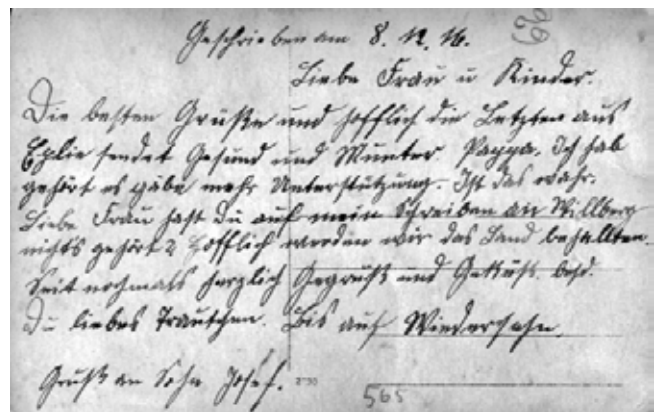 Geschrieben am 8. 12. 16.
99
Liebe Frau u Kinder.
Die besten Grüße und hofflich die Letzten aus
sendet Gesund und Munter Pappa. Ich hab
gehört es gäbe mehr Unterstützung. Ist das wahr.
Liebe Frau hast du auf mein Schreiben an Willberg
nichts gehört? Hofflich werden wir das Land behallten.
Seit nochmals herzlich Gegrüßt und Geküßt. besd.
Du liebes Trautchen. Bis auf Wiedersehn.
Gruß an Sohn Josef.
565